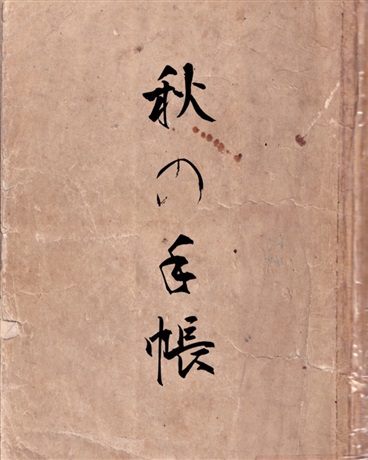 秋の手帳